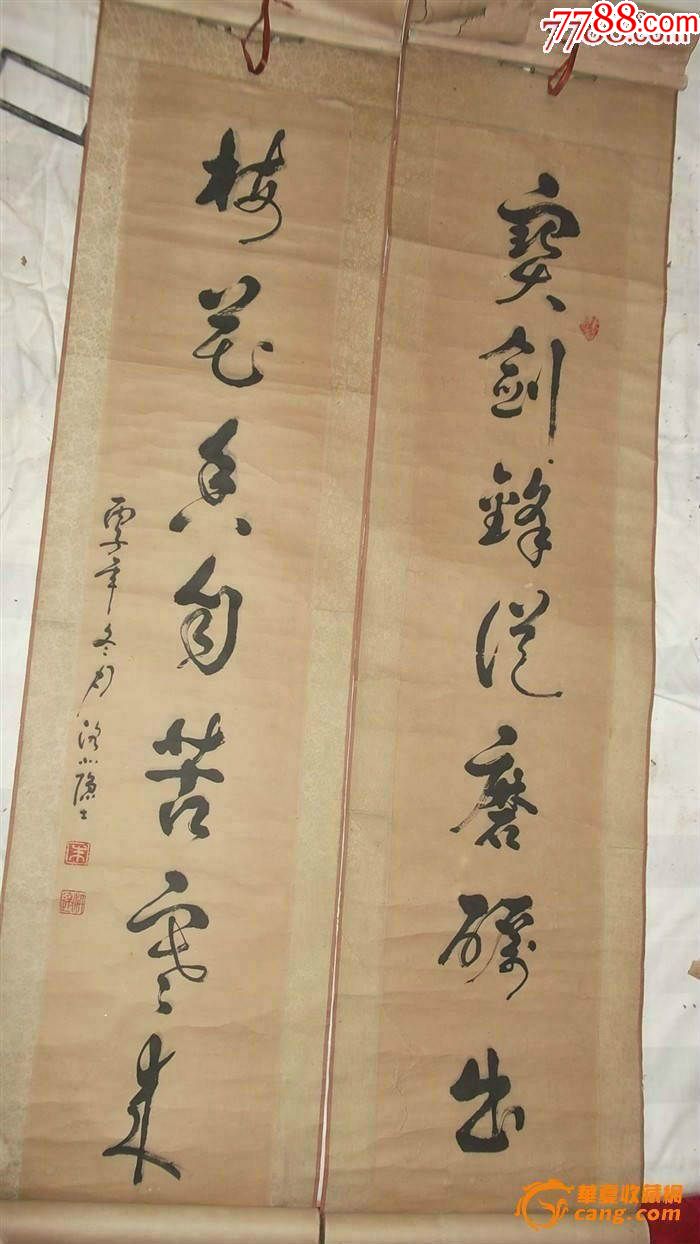 7788.com
寶劍鋒從磨礪出
梅花香自苦寒来
年冬月
華夏收藏網
cang.com